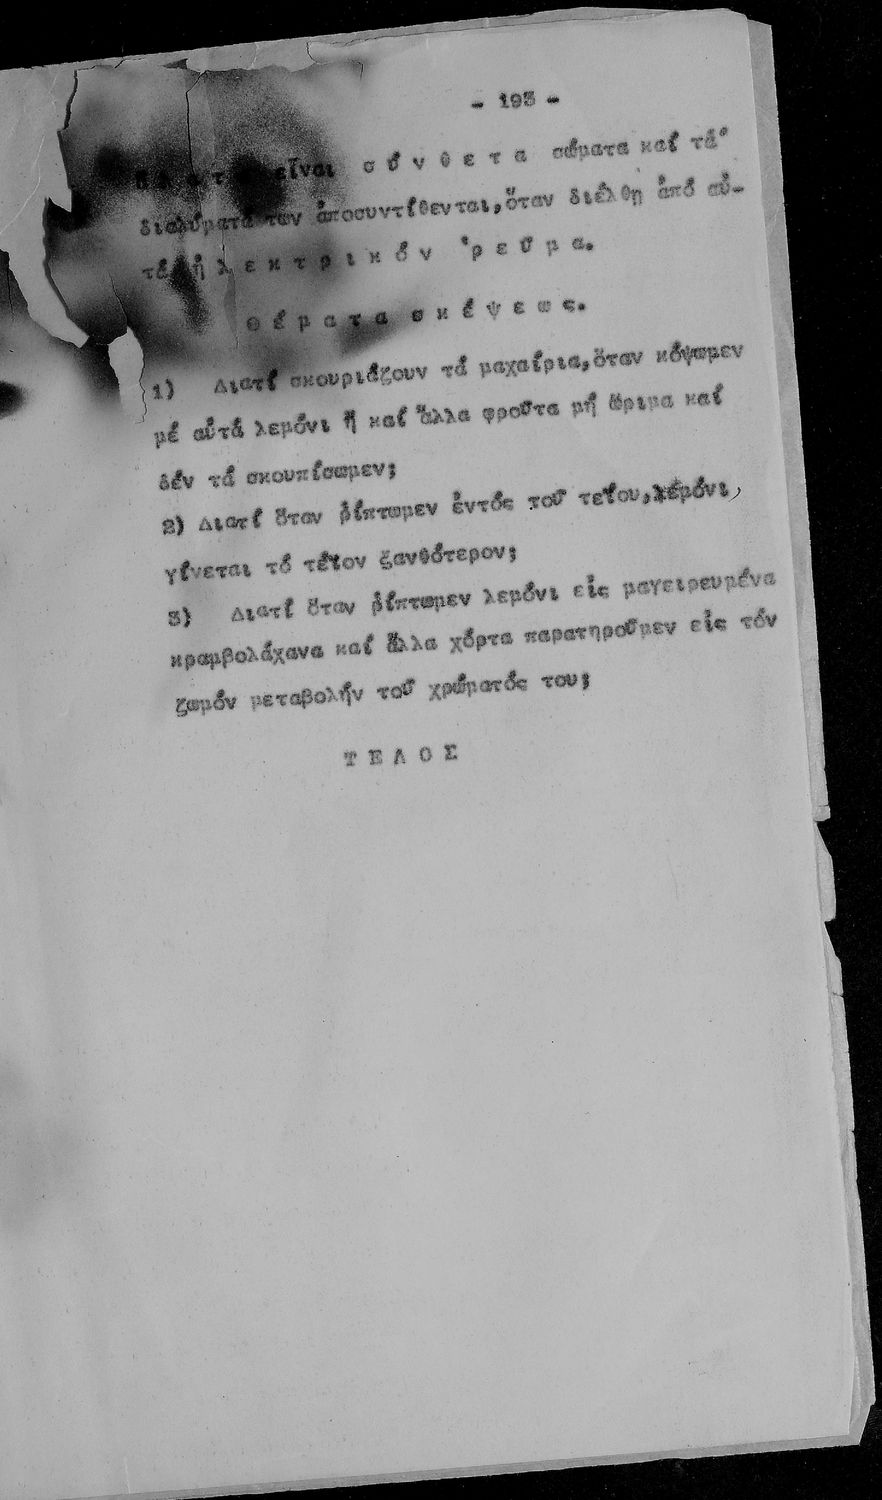 - 193 -
εἶναι σ ύ ν θ ε τ α σώματα καί τά
διαλύματά των ἀποσυντίθενται,ὅταν διέλθη ἀπό αὐ-
τά ἠ λ ε κ τ ρ ι κ ό ν ῥ ε ῦ μ α.
Θ έ μ α τ α σ κ έ ψ ε ω ς.
1) Διατί σκουριάζουν τά μαχαίρια,ὅταν κόψωμεν
μέ αὐτά λεμόνι ἤ καί ἄλλα φροῦτα μή ὥριμα καί
δέν τά σκουπίσωμεν;
2) Διατί ὅταν ῥίπτωμεν ἐντός τοῦ τεΐου,λεμόνι,
γίνεται τό τέϊον ξανθότερον;
3) Διατί ὅταν ῥίπτωμεν λεμόνι εἰς μαγειρευμένα
κραμβολάχανα καί ἄλλα χόρτα παρατηροῦμεν εἰς τόν
ζωμόν μεταβολήν τοῦ χρώματός του;
Τ Ε Λ Ο Σ